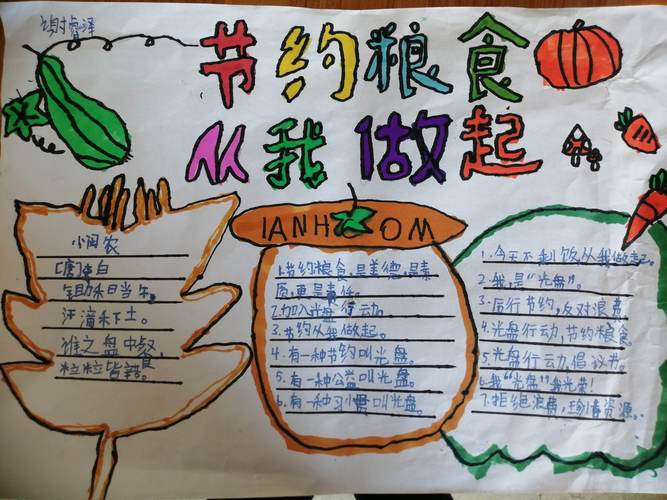 谢睿泽
节约粮食
从我做起
悯农
[唐]李白
锄禾日当午。
汗滴禾下土。
谁之盘中餐,
粒粒皆
IANH OM
1.节约粮食,是美德,是素
质,更是责任。
2.加入光盘行动。
3.节约从我做起。
4.有一种节约叫光盘。
5.有一种公益叫光盘。
6.有一种习惯叫光盘。
1.今天不剩饭从我做起。
2.我是“光盘”。
3.厉行节约,反对浪费
4.光盘行动,节约粮食。
5.光盘行动,倡议书。
6.我“光盘”我光荣!
7.拒绝浪费,珍惜资源。